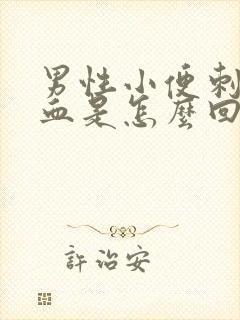 男性小便刺
血是怎麼回
許治安